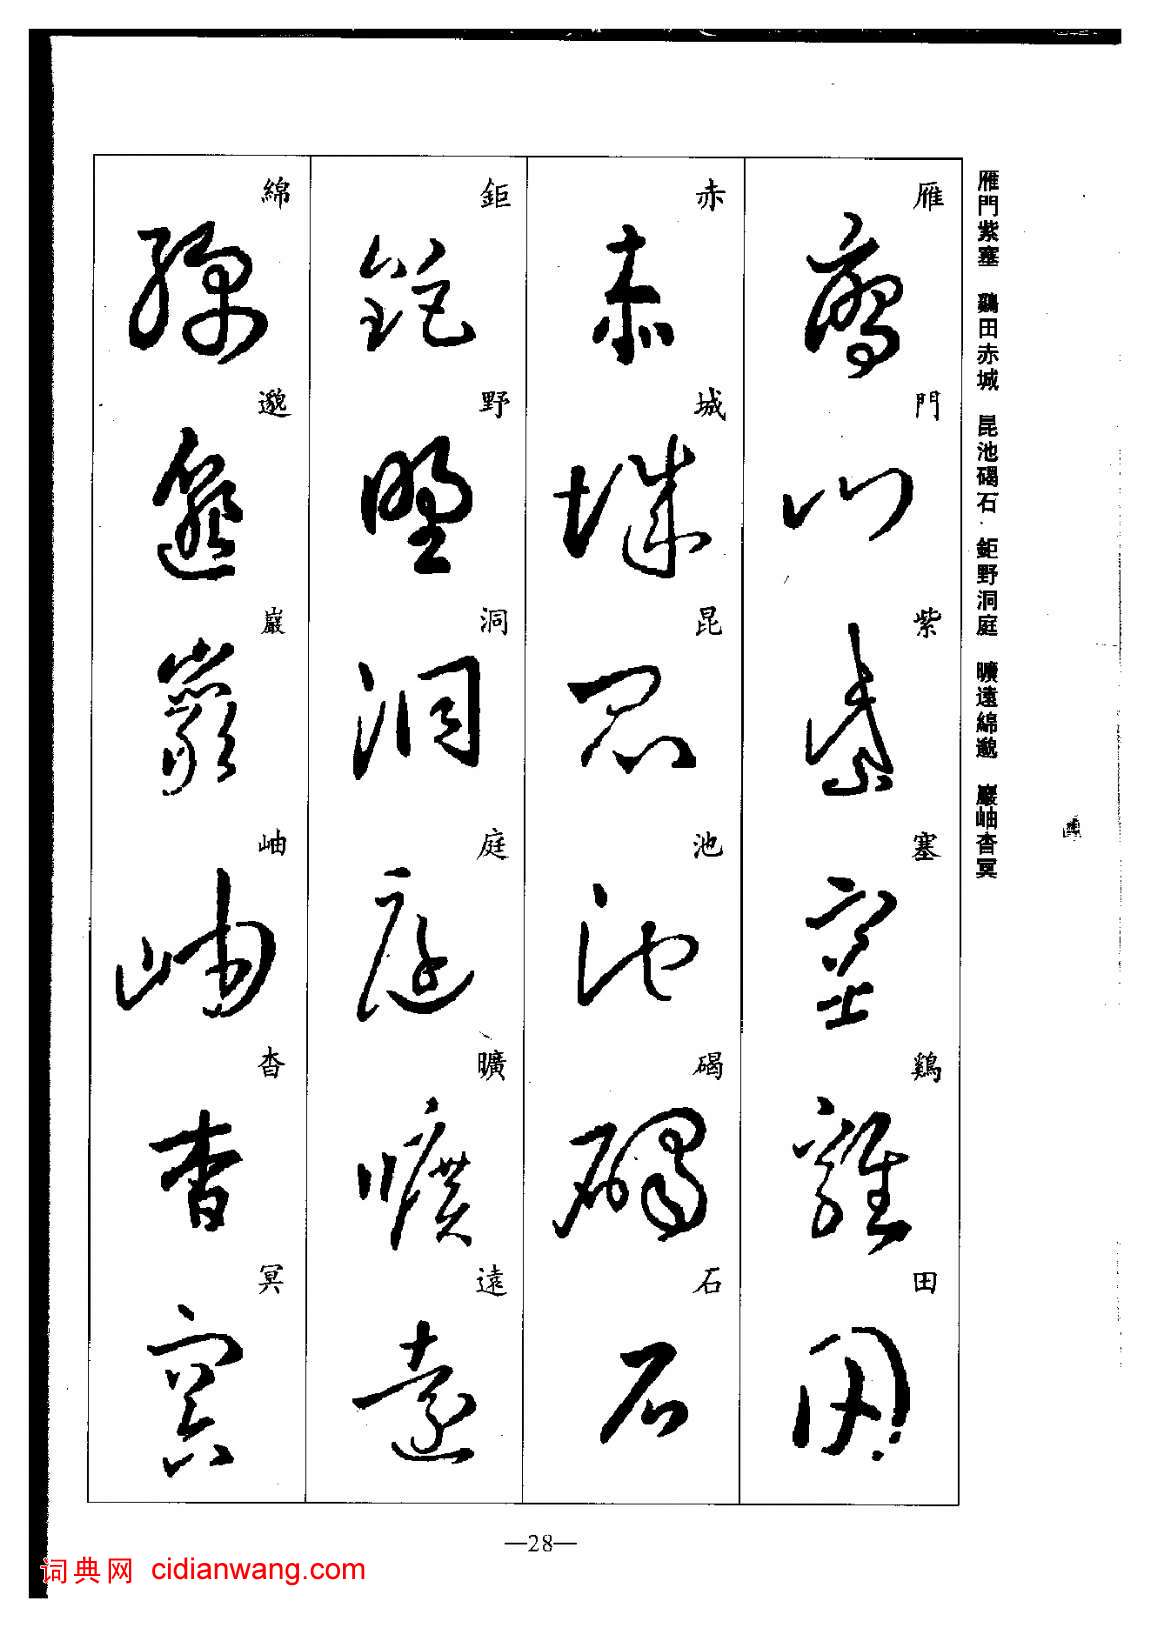 雁門紫塞 鷄田赤城 昆池碣石 鉅野洞庭 曠遠綿邈 巖岫杳冥
雁門紫塞鷄田
赤城昆池碣石
鉅野洞庭曠遠
綿邈巖岫杳冥
—28—
词典网 cidianwang.com